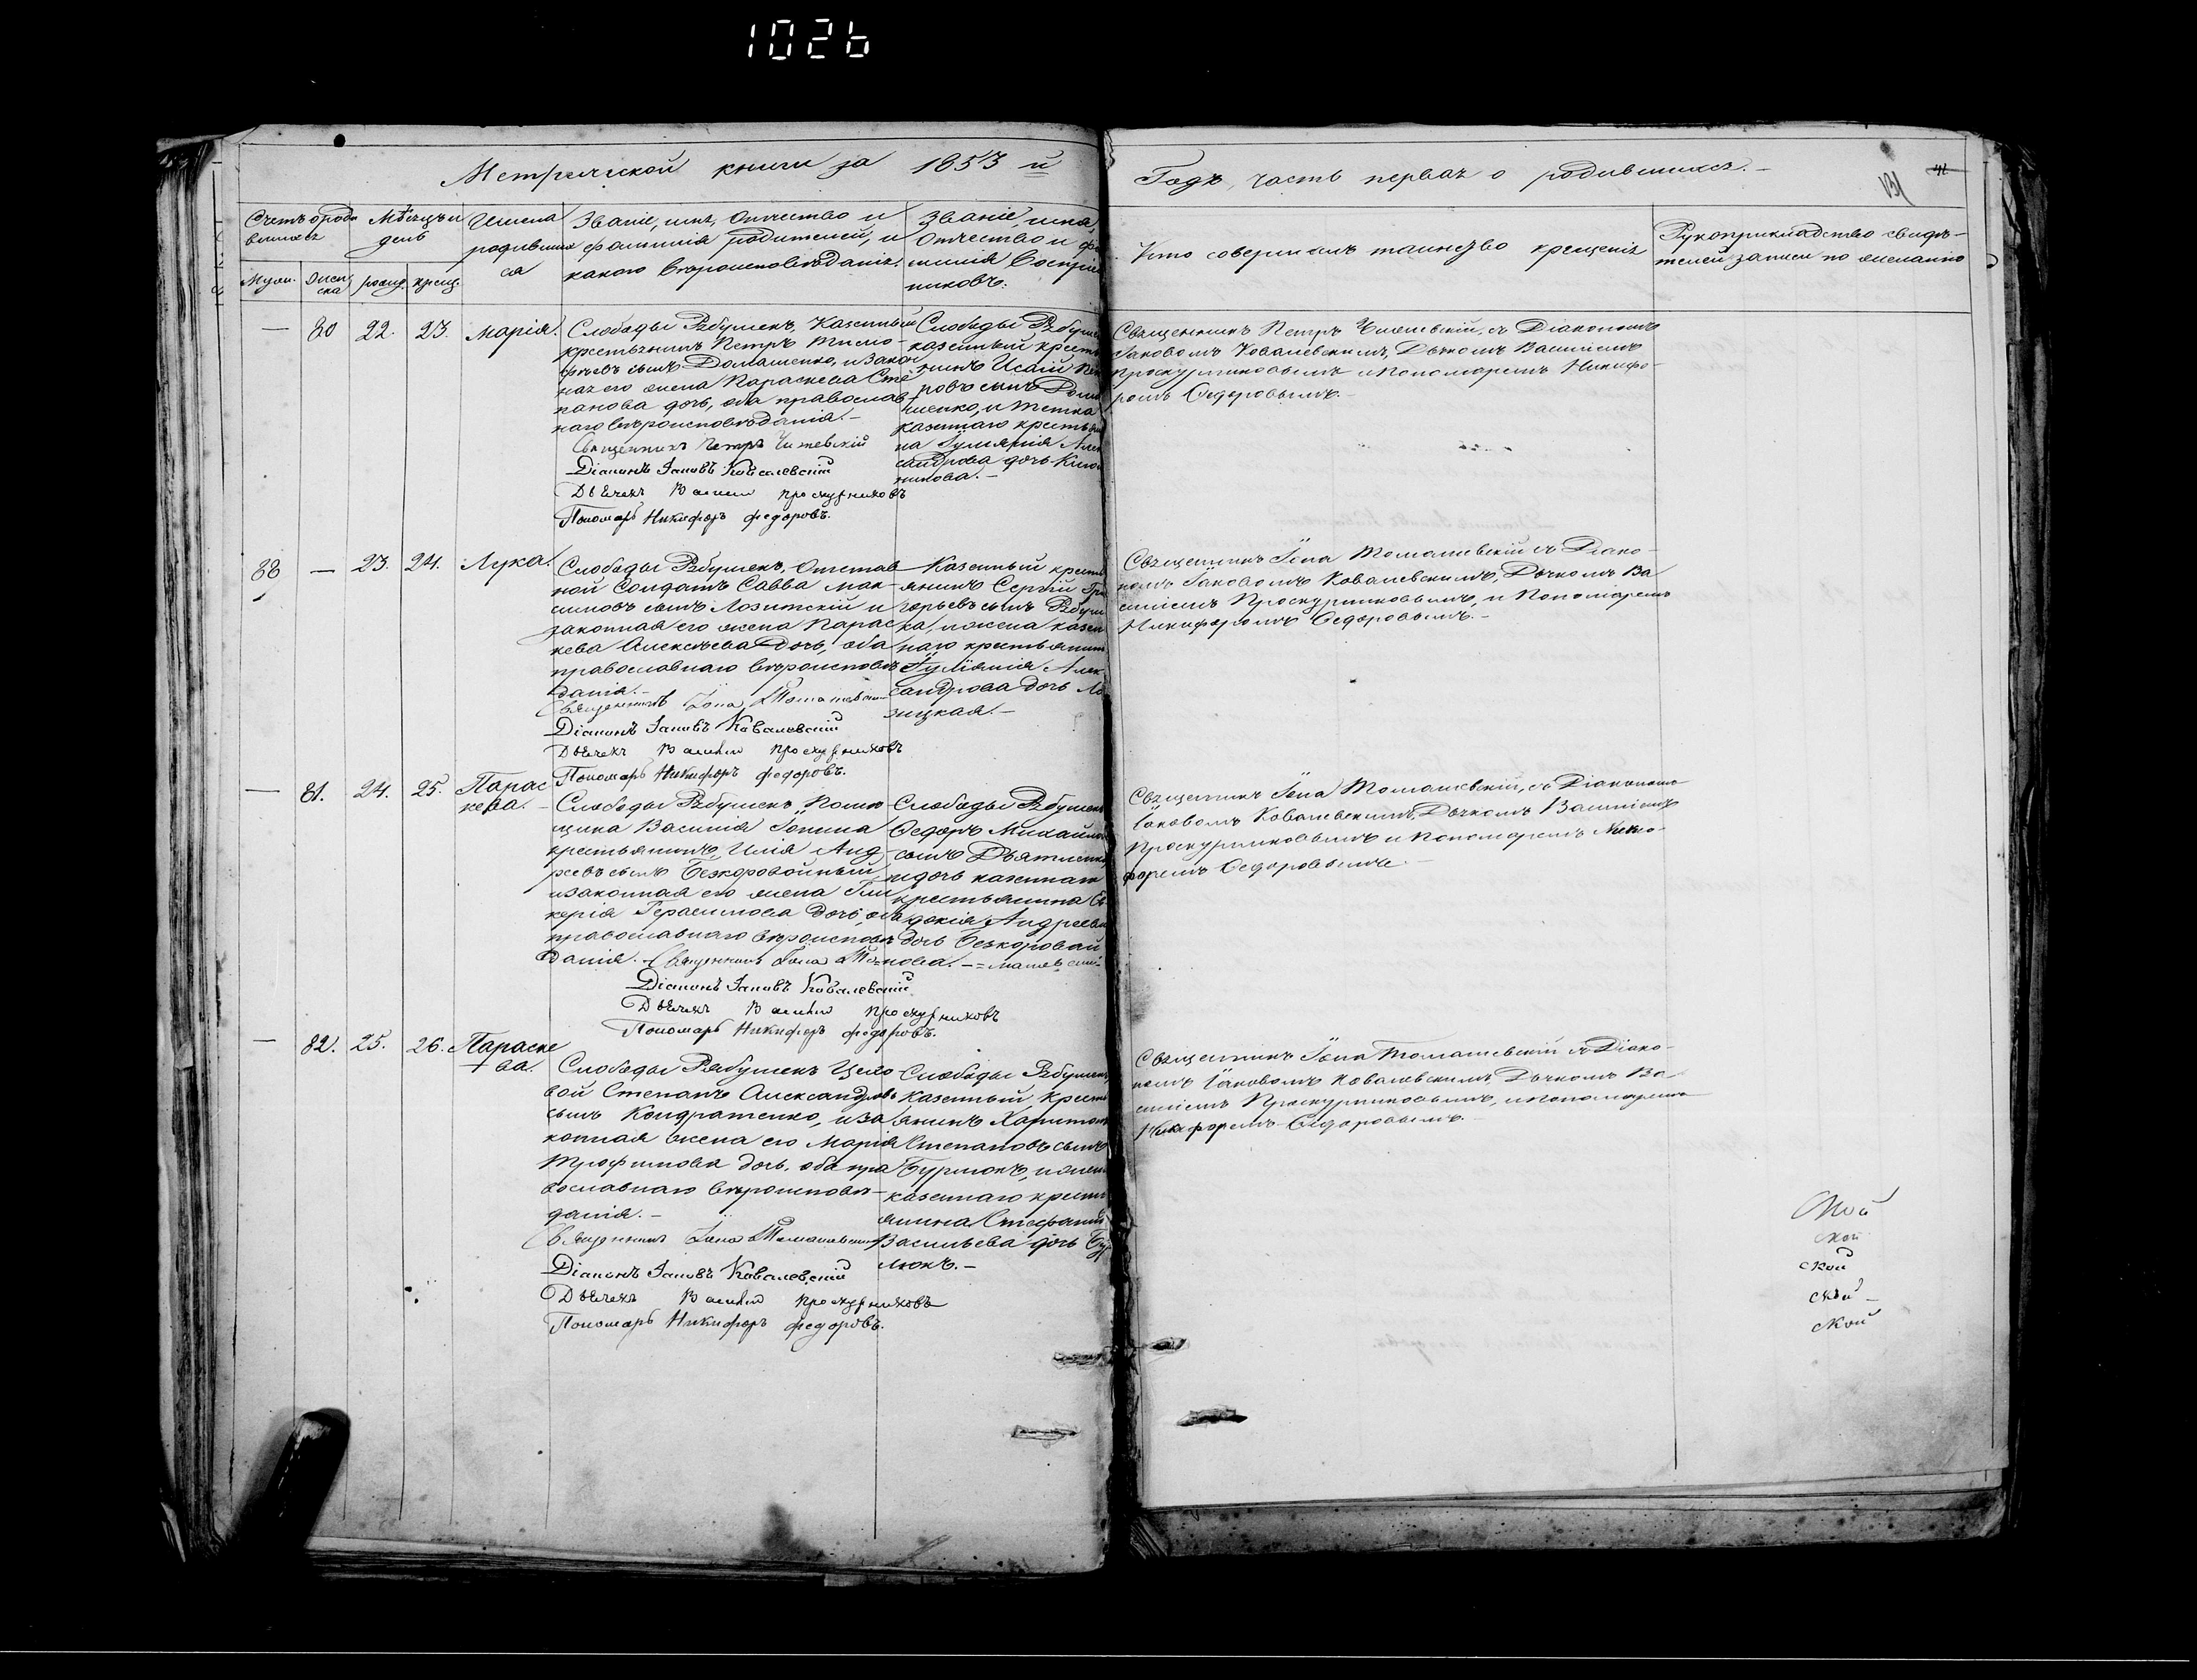 1026
Метрической книги за 1853 й
Годъ, часть первая о родившихся.
131
41
Счетъ роди
вшихся
Мѣсяцъ и
день
Имена
родивших
ся
Званіе, имя, отчество и
фамилія родителей, и
какого вѣроисповѣданія.
Званіе, имя,
отчество и фа
милія воспріем
никовъ.
Кто совершалъ таинство крещенія
Рукоприкладство свидѣ-
телей записи по желанію
Муж. женска рожд. крещ.
— 80 22. 23. Марія.
Слободы Рябушекъ, Казенный
крестьянинъ Петръ Тимо-
феевъ сынъ Домашенко, и закон
ная его жена Параскева Сте
панова дочь, оба православ-
наго вѣроисповѣданія.—
Священникъ Петръ Чижевскій
Діаконъ Іаковъ Ковалевскій
Дьячекъ Василій Проскурниковъ
Пономарь Никифоръ Федоровъ.
Слободы Рябуше
казенный кресть
нинъ Исаій Пет
ровъ сынъ Дома
шенко, и тетка
казеннаго крестьяни
на Іуліянія Алек
сандрова дочь
Священникъ Петръ Чижевскій, съ Діакономъ
Іаковомъ Ковалевскимъ, Дьячкомъ Василіемъ
Проскурниковымъ и Пономаремъ Никифо-
ромъ Федоровымъ.—
88 — 23. 24. Лука.
Слободы Рябушекъ, Отстав
ной Солдатъ Савва Мак-
симовъ сынъ Лозитскій и
законная его жена Парас
кева Алексѣева дочь, оба
православнаго вѣроисповѣ
данія.—
Священникъ Іона Томашевскій
Діаконъ Іаковъ Ковалевскій
Дьячекъ Василій Проскурниковъ
Пономарь Никифоръ Федоровъ.
Казенный кресть
янинъ Сергій Гри
горьевъ сынъ Рябуш
ка, и жена казен
наго крестьянин
Іуліянія Алек
сандрова дочь Ло
зицкая.—
Священникъ Іона Томашевскій съ Діако-
номъ Іаковомъ Ковалевскимъ, Дьячкомъ Ва
силіемъ Проскурниковымъ, и Пономаремъ
Никифоромъ Федоровымъ.—
— 81. 24. 25. Парас
кева.—
Слободы Рябушекъ Помѣ
щика Василія
крестьянинъ, Илія Анд-
реевъ сынъ Безкоровойный
и законная его жена Гли
керія Герасимова дочь, оба
православнаго вѣроисповѣ
данія.— Священникъ Іона То=
=машевскій
Діаконъ Іаковъ Ковалевскій
Дьячекъ Василій Проскурниковъ
Пономарь Никифоръ Федоровъ.
Слободы Рябушекъ
Федоръ Михайло
сынъ Дьятленко
и дочь казеннаго
крестьянина Ев
докія Андреева
дочь Безкоровай
нова.—
Священникъ Іона Томашевскій, съ Діакономъ
Іаковомъ Ковалевскимъ, Дьячкомъ Василіемъ
Проскурниковымъ и Пономаремъ Ники-
форомъ Федоровымъ.—
— 82. 25. 26. Параске
ва.
Слободы Рябушекъ
Степанъ Александровъ
сынъ Кондратенко, и за
конная жена его Марія
Трофимова дочь, оба пра
вославнаго вѣроисповѣ-
данія.—
Священникъ Іона Томашевскій
Діаконъ Іаковъ Ковалевскій
Дьячекъ Василій Проскурниковъ
Пономарь Никифоръ Федоровъ.
Слободы Рябушекъ,
Казенный кресть
янинъ Харитонъ
Степановъ сынъ
Бурлюкъ, и жена
казеннаго кресть
янина Стефанид
Васильева дочь Бур
люкъ.—
Священникъ Іона Томашевскій съ Діако-
номъ Іаковомъ Ковалевскимъ, Дьячкомъ Ва
силіемъ Проскурниковымъ, и Пономаремъ
Никифоромъ Федоровымъ.—
ской
ской
ской
ской